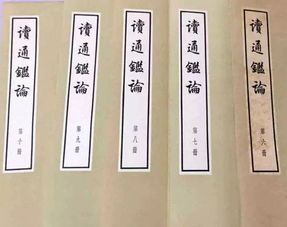 讀通鑑論
第十冊
讀通鑑論
第九冊
讀通鑑論
第八冊
讀通鑑論
第七冊
讀通鑑論
第六冊